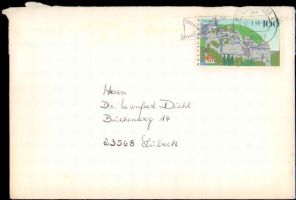 100
Herrn
Dr. Manfred Diehl
Bückenweg 14
23568 Lübeck